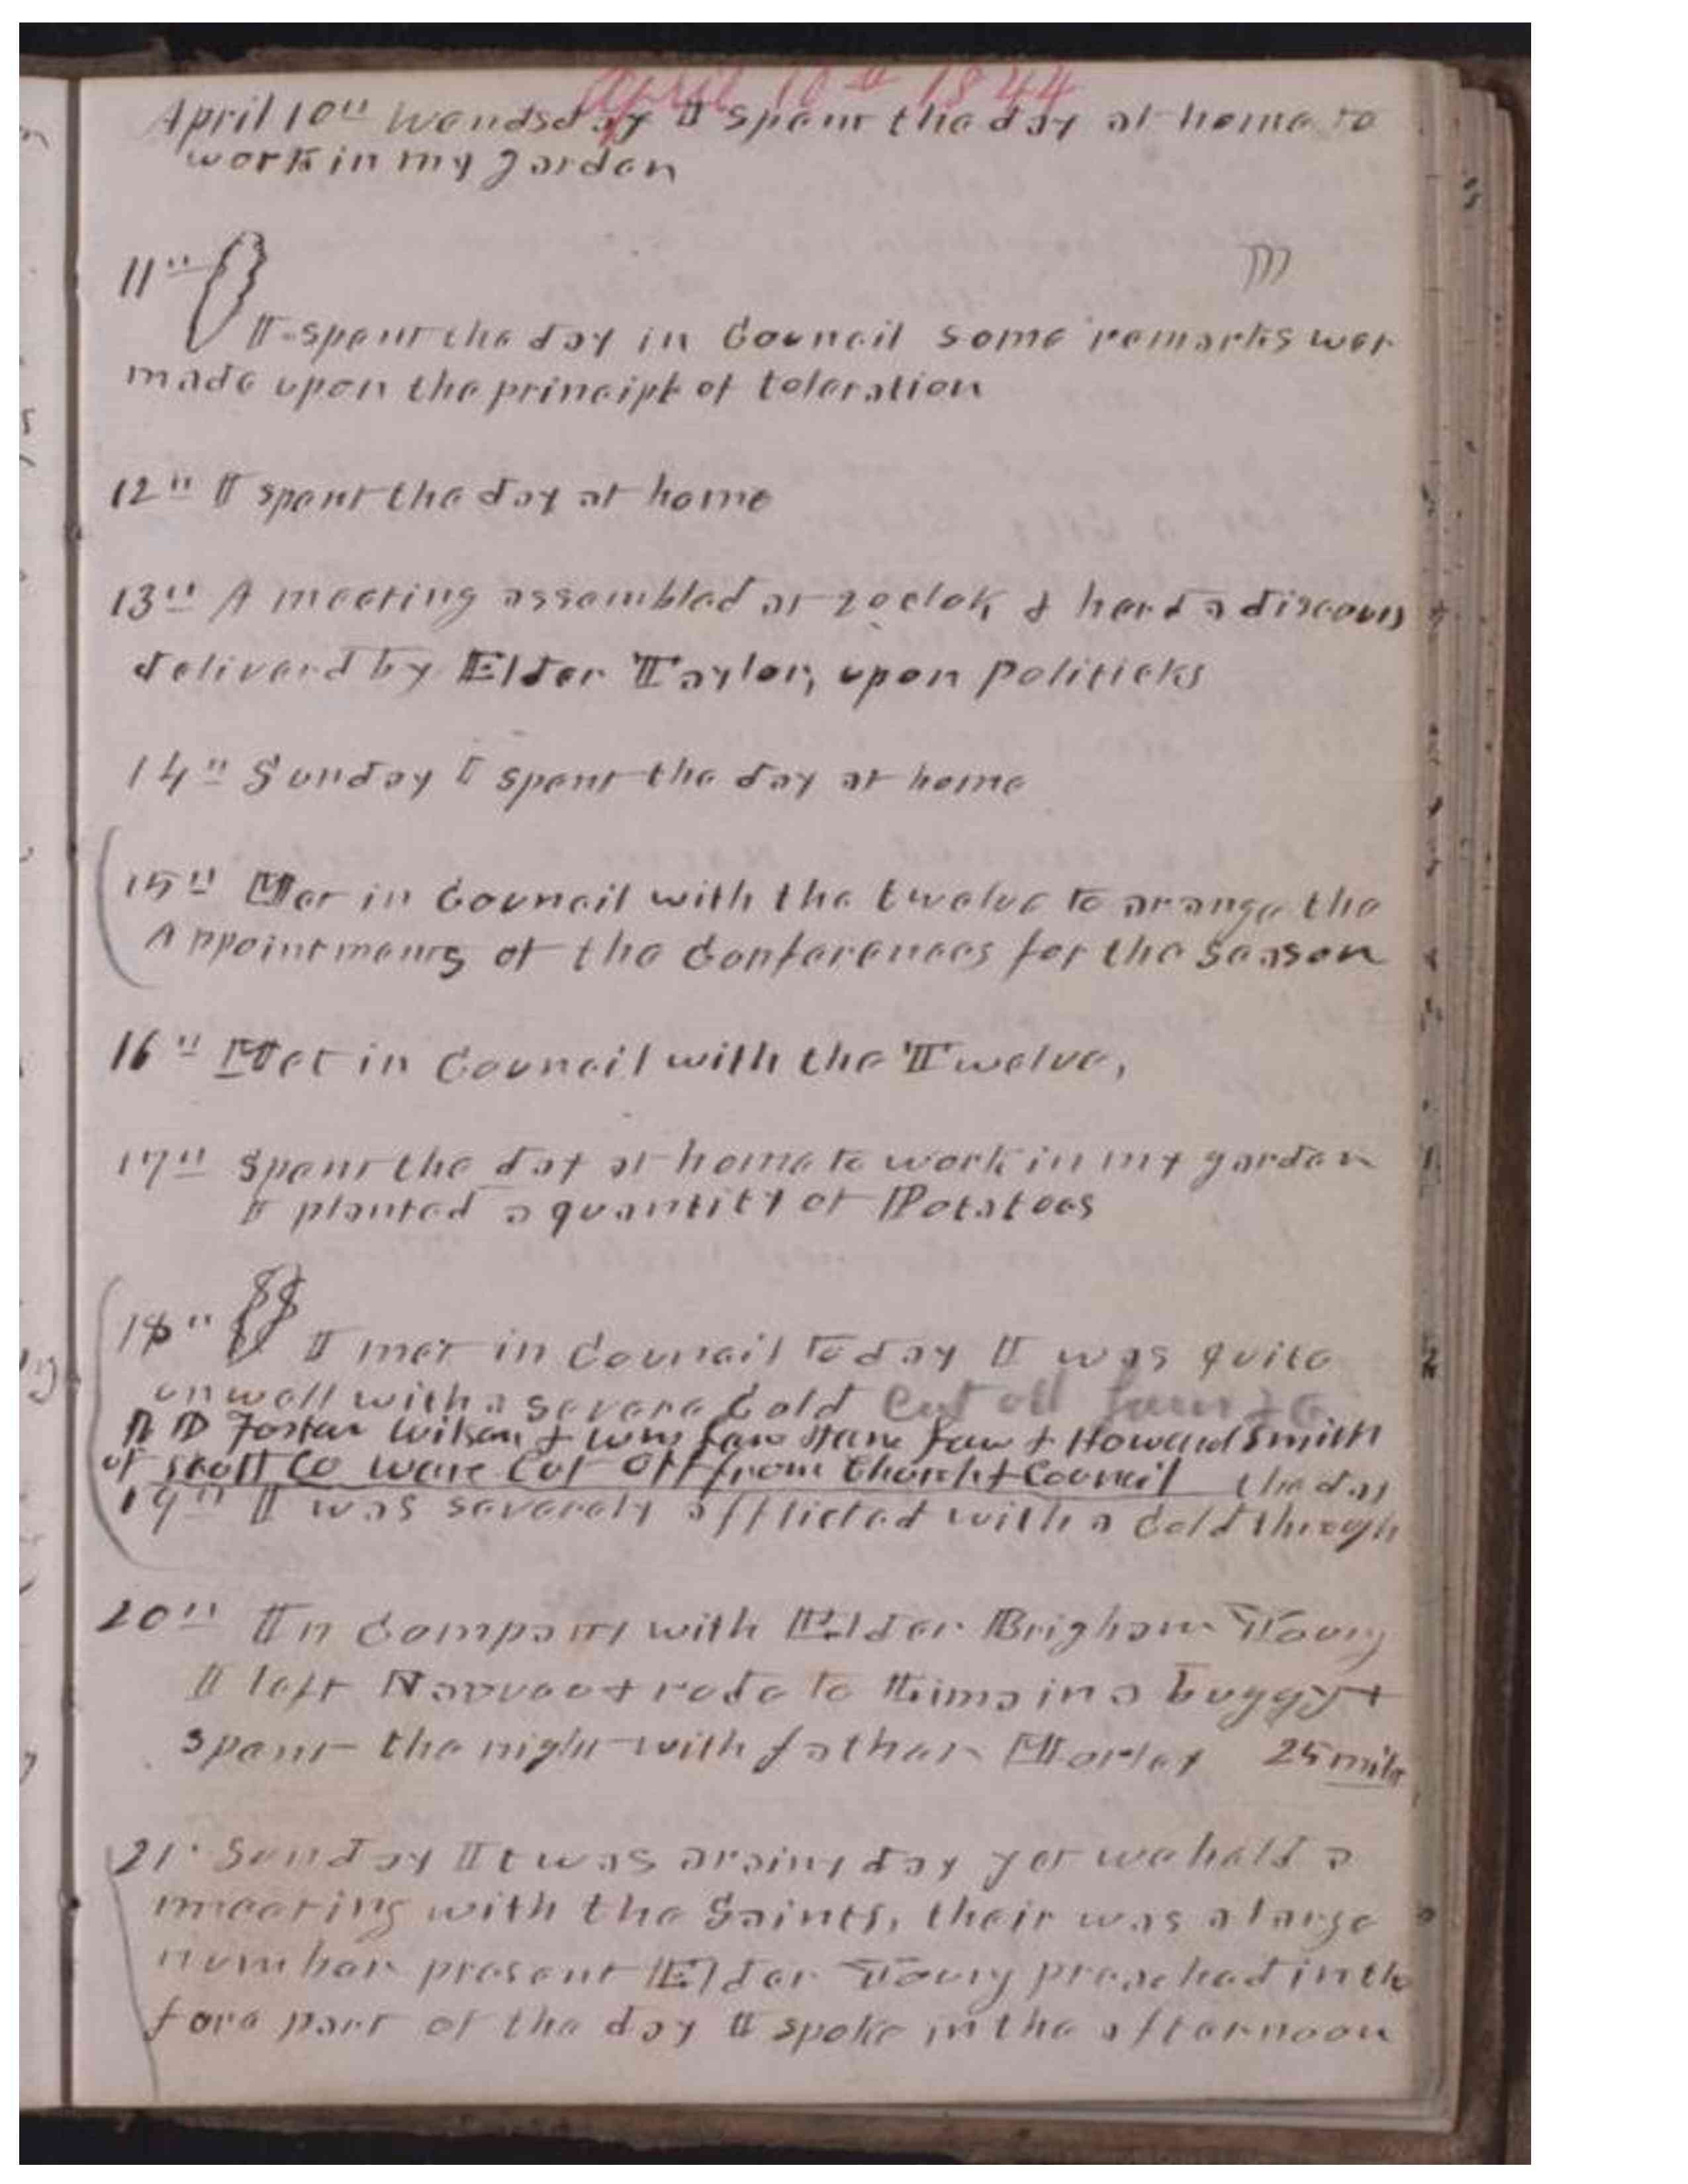 April 10th 1844
April 10th Wendsday I spent the day at home to
work in my garden
11th
I spent the day in Council some remarks wer
made upon the principle of toleration
12th I spent the day at home
13th A meeting assembled at 2 oclok & herd a discours
deliverd by Elder Taylor, upon Politicks
14th Sunday I spent the day at home
15th Met in Council with the twelve to arange the
Appointments of the Conferences for the Season
16th Met in Council with the Twelve,
17th Spent the day at home to work in my garden
I planted a quantity of Potatoes
18th I met in Council to day I was quite
unwell with a severe Cold Cut off
R D Foster Wilson & Wm Law Jane Law & Howard Smith
of Scott Co ware Cut Off from Church & Council the day
19th I was severely afflicted with a Cold through
20th In Company with Elder Brigham Young
I left Nauvoo & rode to Lima in a buggy &
spent the night with father Morley 25 mile
21 Sunday It was a rainy day yet we held a
meeting with the Saints, their was a large
number present Elder Young preached in the
fore part of the day I spoke in the afternoon